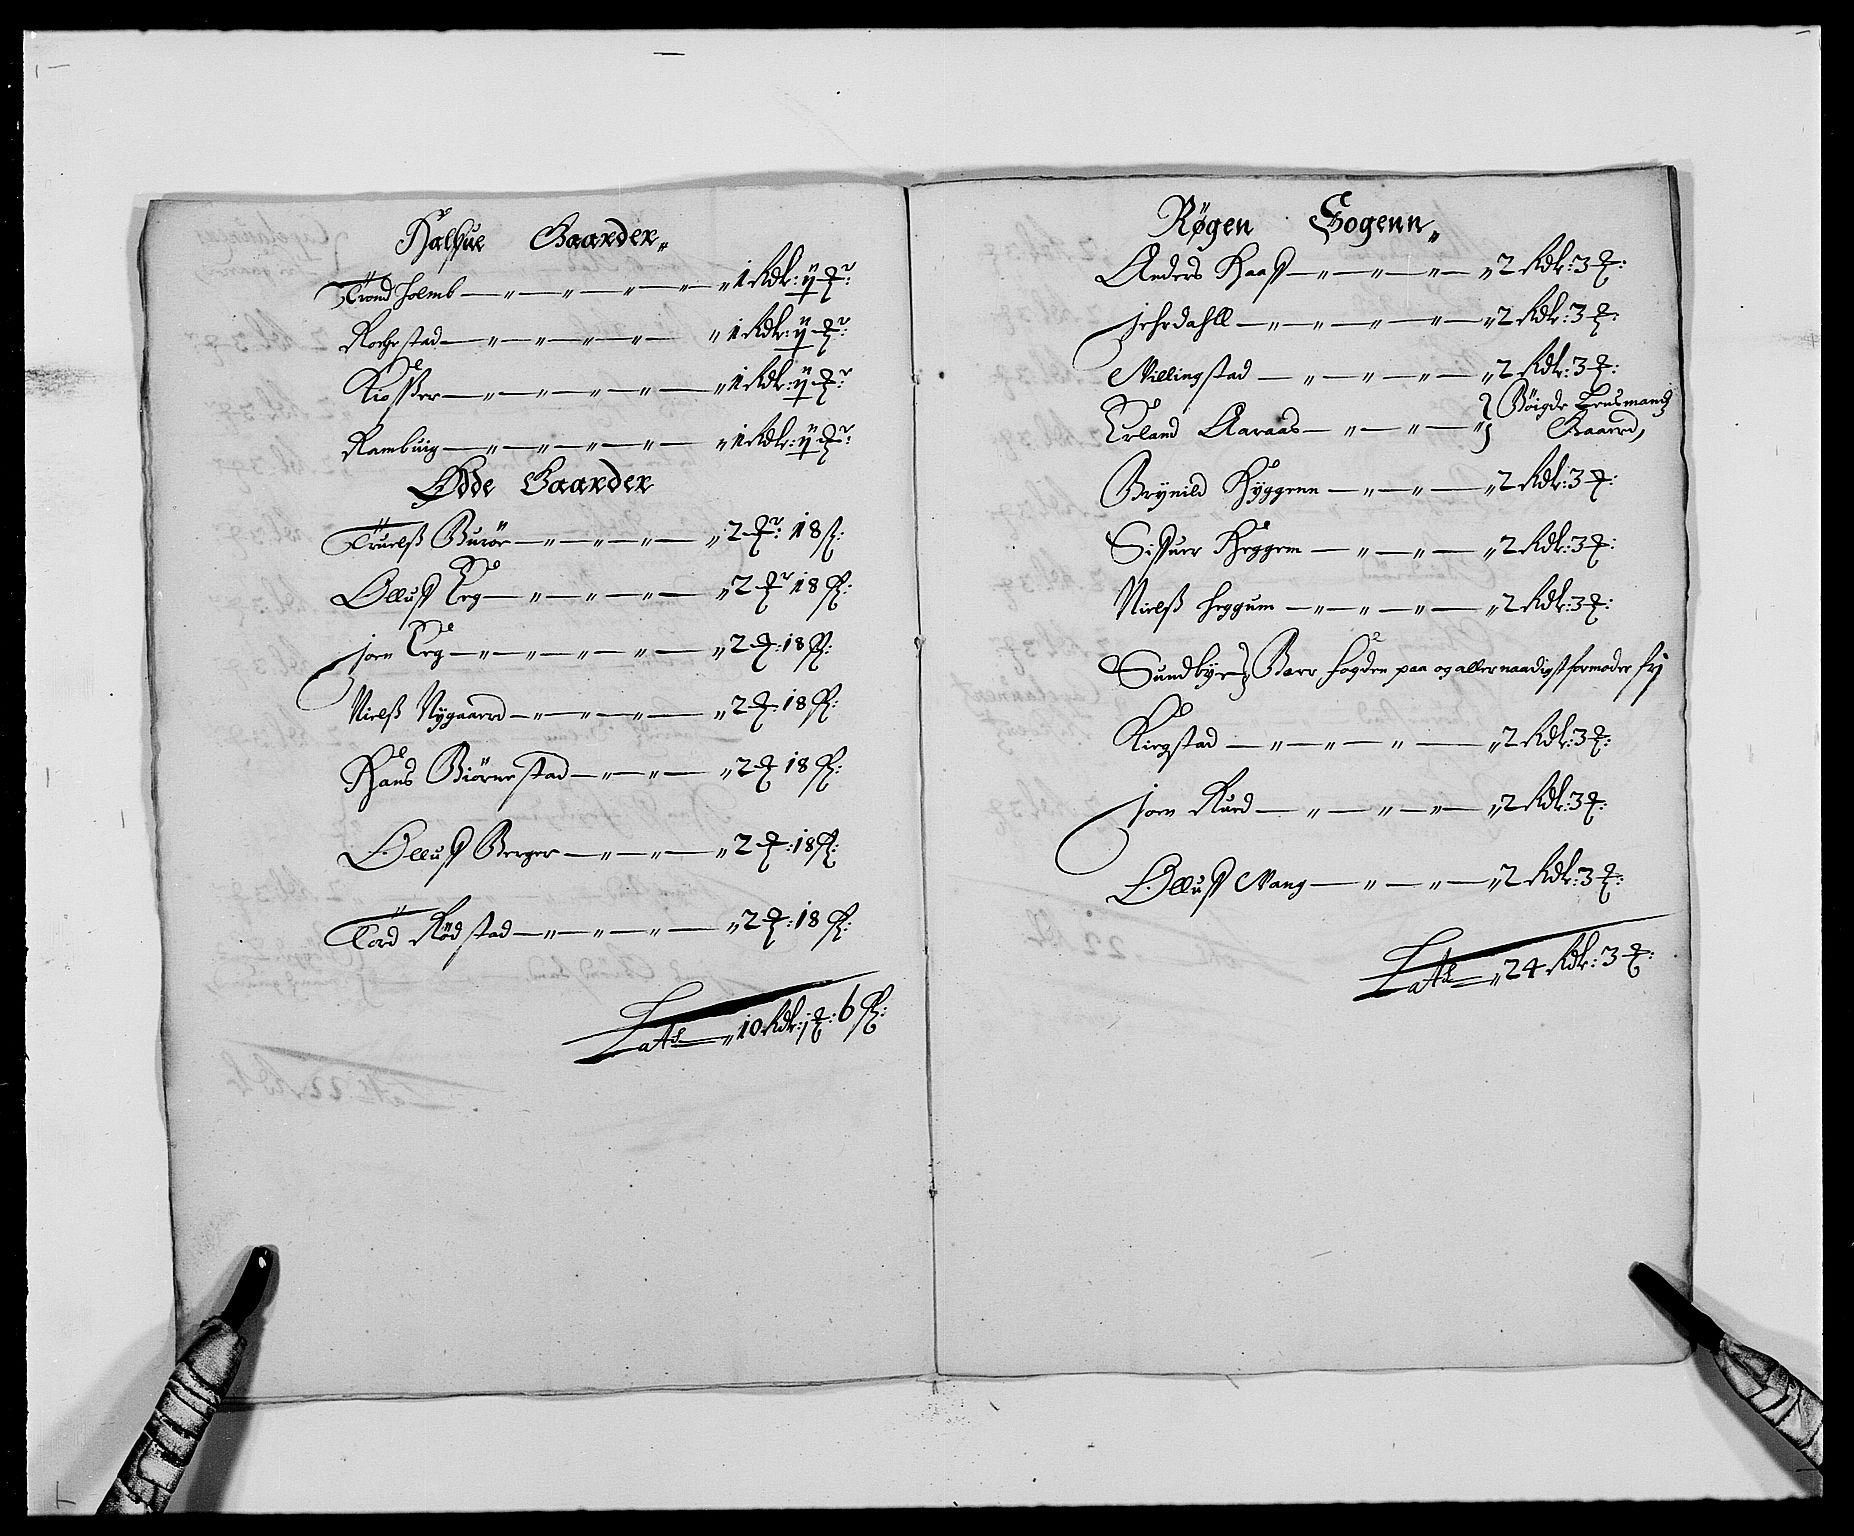 Halffue Gaarder
Trond Holmb — " — " — " — " — " 1 Rdlr: ij ort
Rochestad — " — " — " — " 1 Rdlr: ij ort
Kiosser — " — " — " — " 1 Rdlr: ij ort
Rambuig — " — " — " — " 1 Rdlr: ij ort
Øde Gaarder
Truelß Buröe — " — " — " 2 ort: 18 ß:
Olluff Leg — " — " — " 2 ort 18 ß:
Joen Leg — " — " — " — " 2 ort: 18 ß:
Nielß Nygaard — " — " — " 2 ort: 18 ß:
Hans Biörnestad — " — " — " 2 ort 18 ß:
Olluff Berger — " — " — " 2 ort: 18 ß:
Tord Rödstad — " — " — " 2 ort: 18 ß:
Lats — " 10 Rdlr: j ort: 6 ß:
Røgen Sogenn
Anders Haaff — " — " — " 2 Rdlr: 3 ort:
Jehrdahll — " — " — " — " 2 Rdlr: 3 ort:
Villingstad — " — " — " 2 Rdlr: 3 ort:
Erland Aaraas — " — " — " } Böigde Lensmandz
Gaard,
Brynild Hyggenn — " — " — " 2 Rdlr: 3 ort:
Siffuer Heggem — " — " — " 2 Rdlr: 3 ort:
Nielß Heggum — " — " — " 2 Rdlr: 3 ort:
Sundbye } Boer fogden paa og allernaadigst formoder frj
Kiegstad — " — " — " — " 2 Rdlr: 3 ort:
Joen Ruud — " — " — " 2 Rdlr: 3 ort:
Olluff Vang — " — " — " 2 Rdlr: 3 ort:
Lats — " 24 Rdlr: 3 ort: